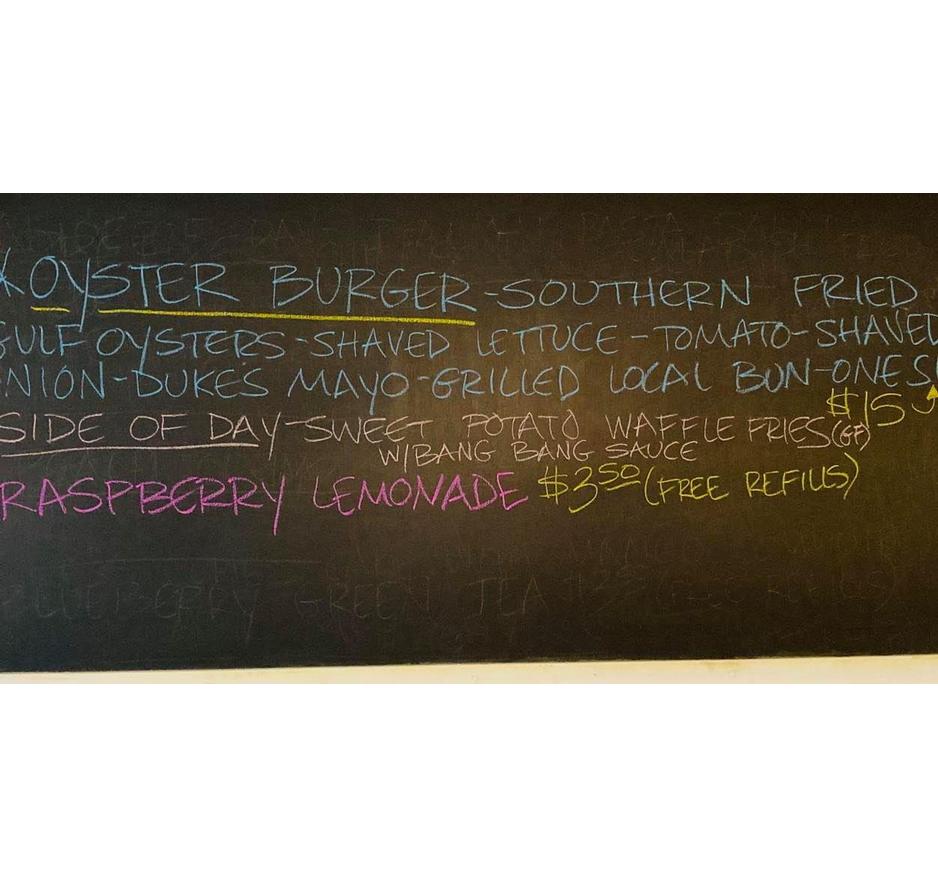 OYSTER BURGER-SOUTHERN FRIED
GULF OYSTERS-SHAVED LETTUCE-TOMATO-SHAVED
NION-DUKES MAYO-GRILLED LOCAL BUN-ONES!
$15
SIDE OF DAY-SWEET POTATO WAFFLE FRIES(GF)
W/BANG BANG SAUCE
RASPBERRY LEMONADE $3.50 (FREE REFILLS)
BLUEBERRY GREEN TEA (FREE REFILLS)